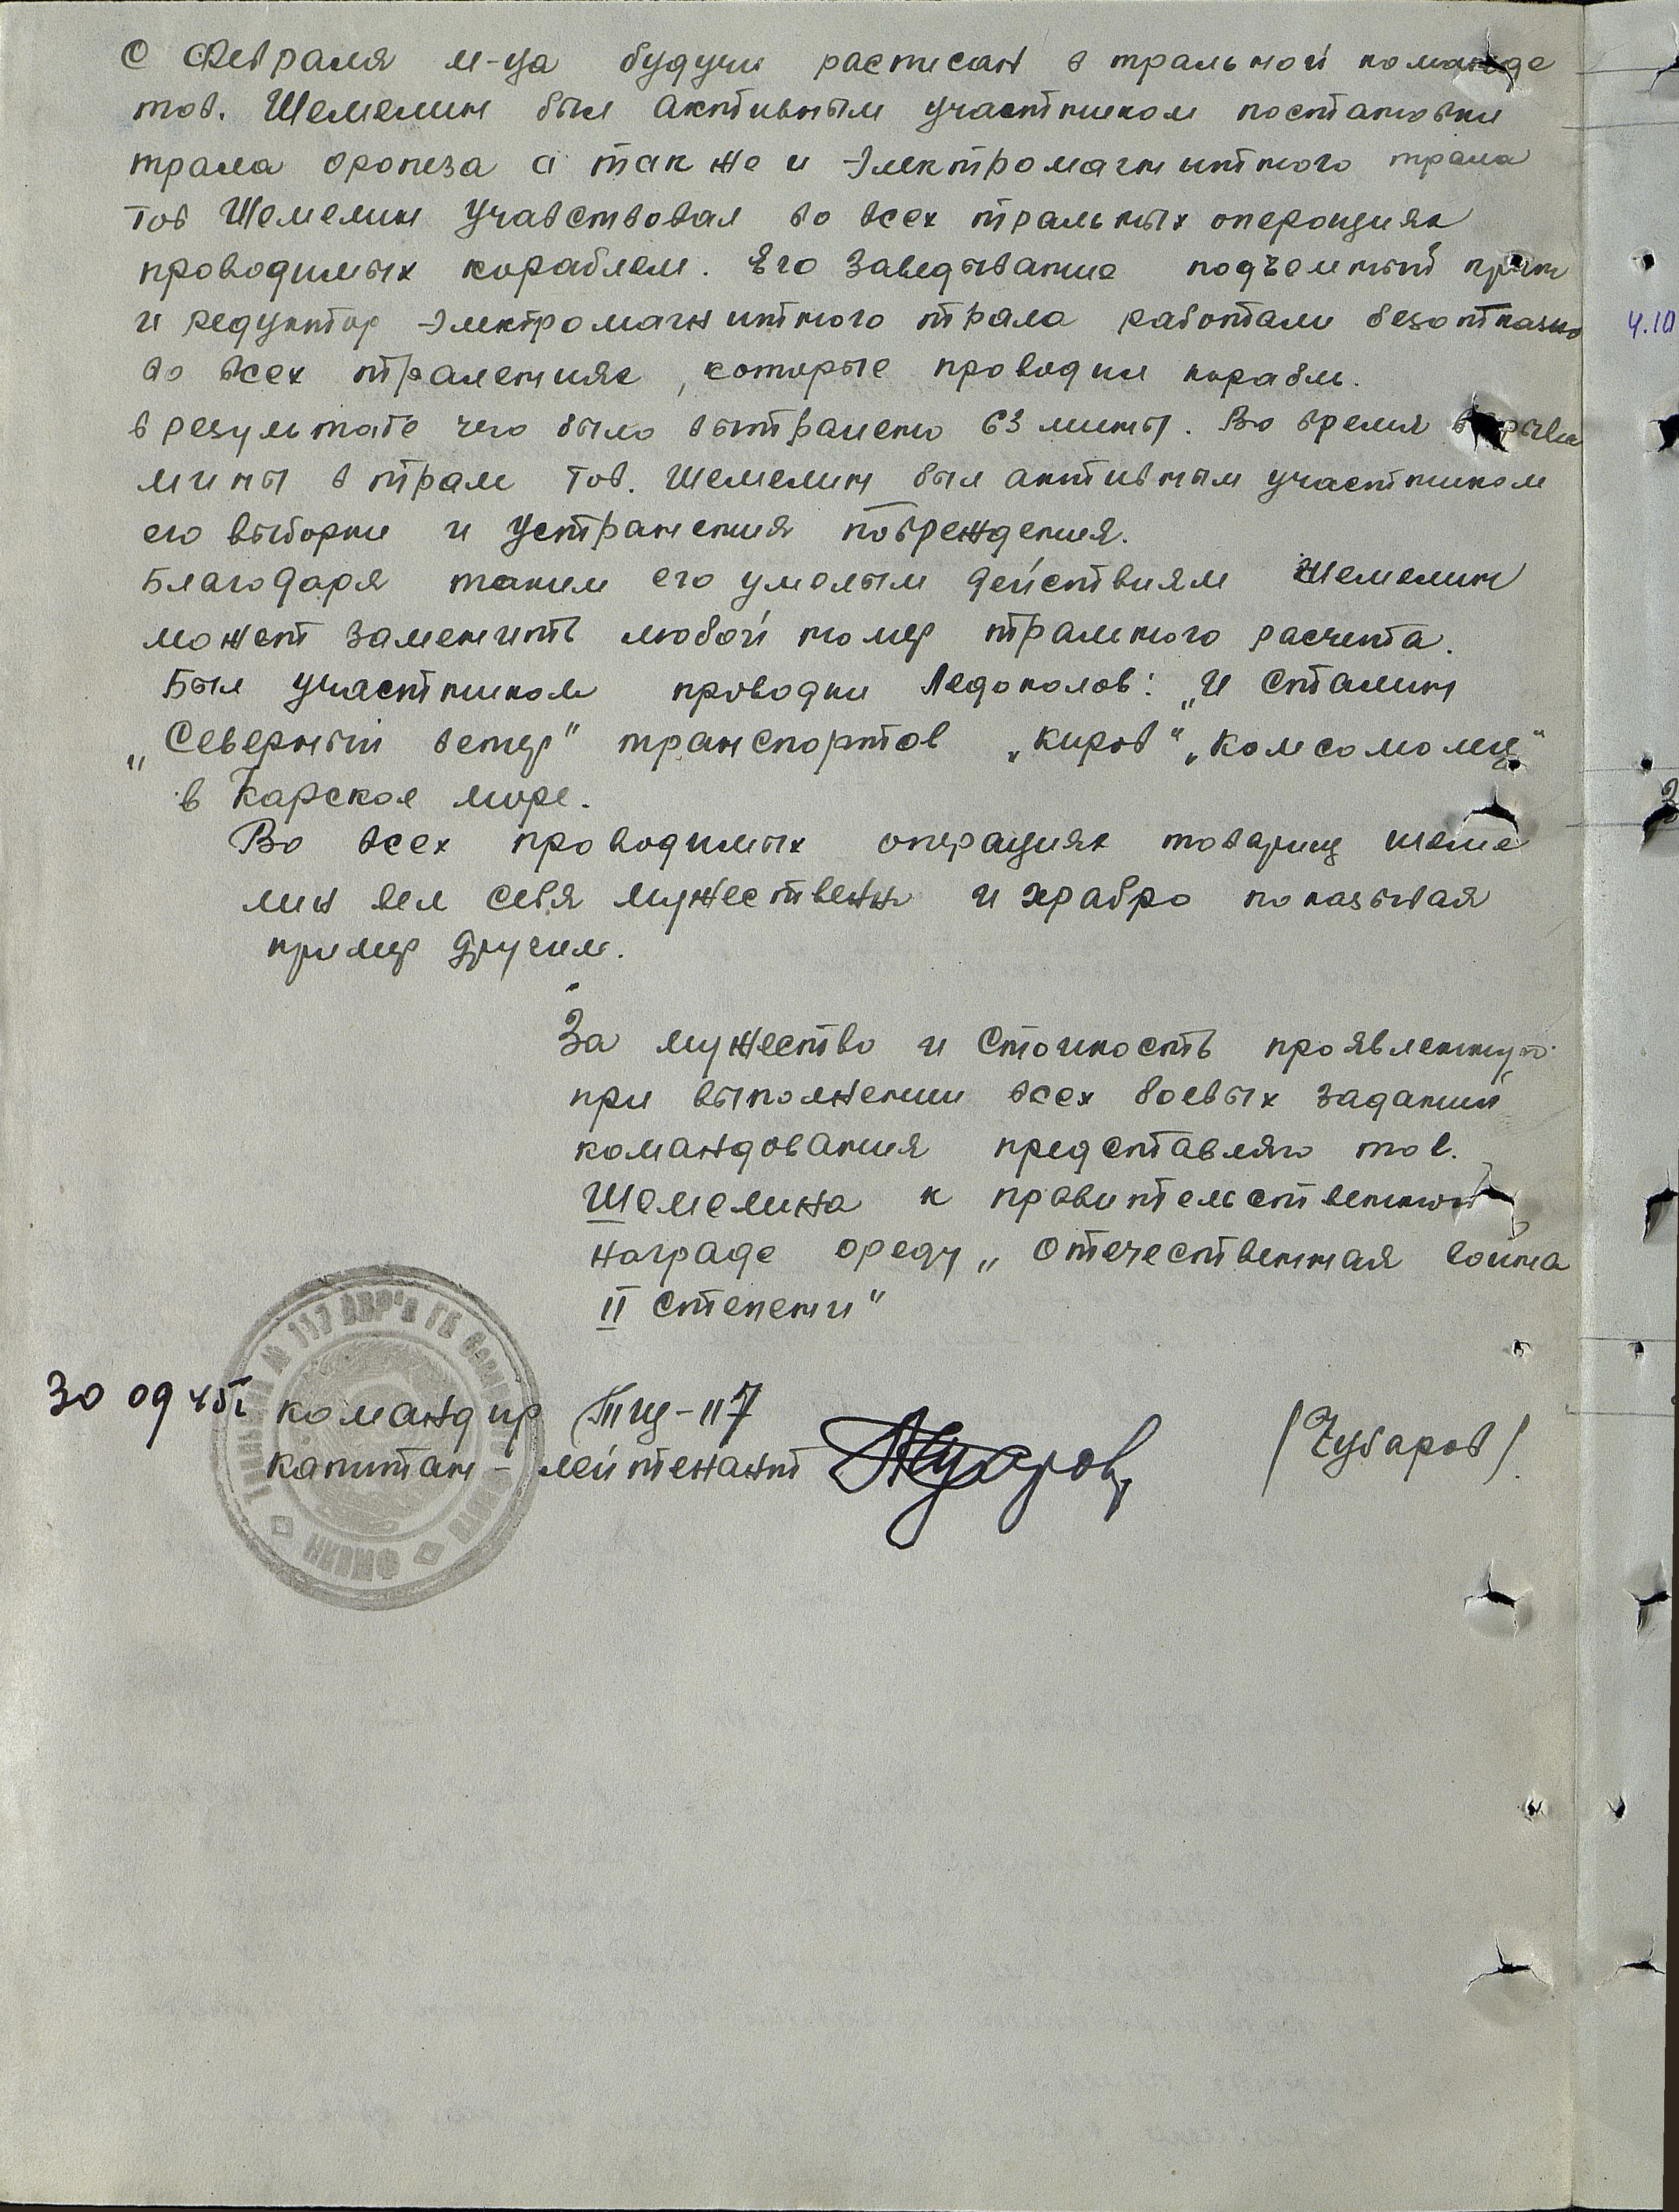 С Февраля м-ца будучи расписан в тральной команде
тов. Шемелин был активным участником постановки
трала оропеза а так же и Электромагнитного трала
Тов Шемелин учавствовал во всех тральных операциях
проводимых кораблем. Его заведывание подъемный
и редуктор Электромагнитного трала работали безотказно
во всех тралениях, которые проводил корабль.
в результате чего было вытралено 63 мины. Во время взрыва
мины в трале Тов. Шемелин был активным участником
его выборки и устранения повреждения.
Благодаря таким его умелым действиям Шемелин
может заменить любой номер трального расчета.
Был участником проводки Ледоколов: „И Сталин
„Северный ветер" транспортов „Киров" „Комсомолец"
в Карское море.
Во всех проводимых операциях товарищ шеме
лин вел себя мужественно и храбро показывая
пример другим.
За мужество и Стойкость проявленную
при выполнении всех боевых заданий
командования представляю тов.
Шемелина к правительственной
награде ордену „Отечественная война
II степени"
30 09 45г командир Тщ-117
капитан-лейтенант /Чубаров/
4.10